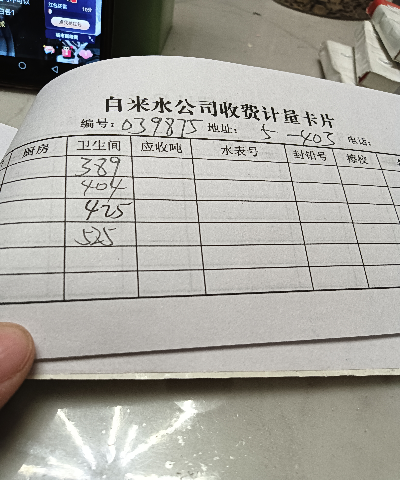 自来水公司收费计量卡片
编号:039875 地址: 5-403 电话:
厨房 卫生间 应收吨 水表号 封铅号
389
404
425
525